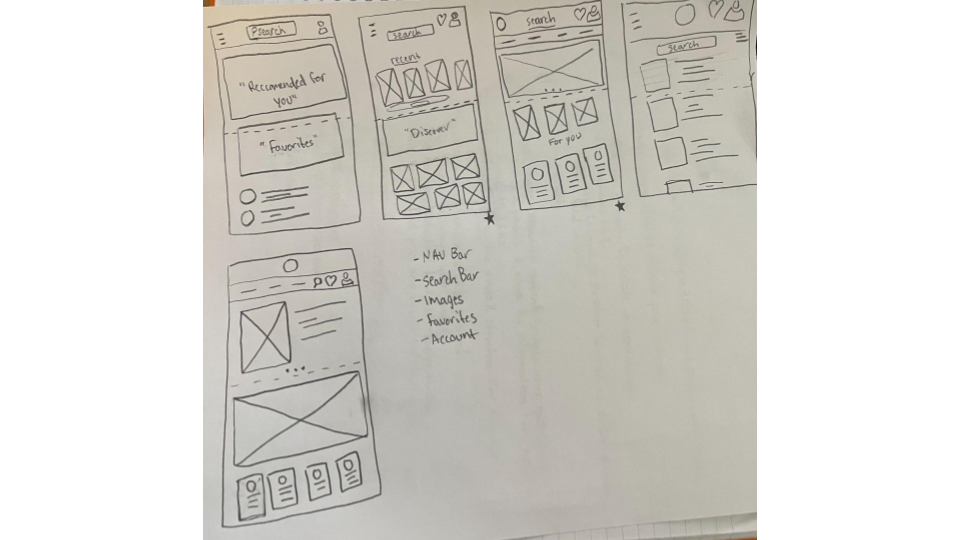 search
"Reccomended for
you"
"Favorites"
search
recent
"Discover"
search
For you
search
- NAV Bar
- Search Bar
- Images
- Favorites
- Account